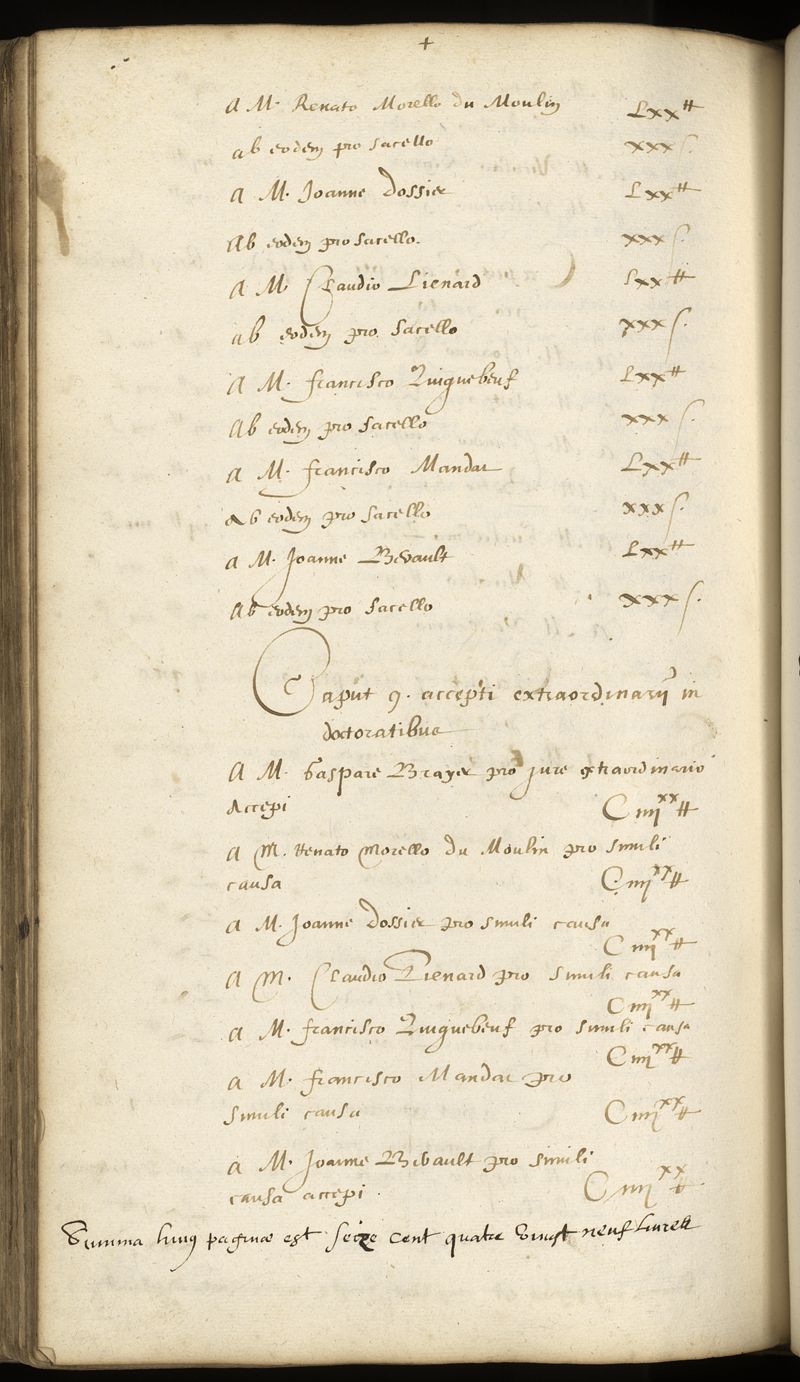 +
A M. Renato Morello du Moulin Lxx ₶
ab eodem pro sacello xxx s.
A M. Joanne Dossier Lxx ₶
Ab eodem pro sacello. xxx s.
A M. Claudio Lienard Lxx ₶
ab eodem pro sacello xxx s.
A M. francisco Quiquebeuf Lxx ₶
Ab eodem pro sacello xxx s.
A M. francisco Mandat Lxx ₶
Ab eodem pro sacello xxx s.
A M. Joanne Bevault Lxx ₶
Ab eodem pro sacello xxx s.
Caput 9. accepti extraordinarij in
doctoratibus
A M. Gaspare Brayer pro jure extraordinario
Accepi C iiij xx ₶
A M. Renato Morello du Moulin pro simili
causa C iiij xx ₶
A M. Joanne Dossier pro simili causa
C iiij xx ₶
A M. Claudio Lienard pro simili causa
C iiij xx ₶
A M. francisco Quiquebeuf pro simili causa
C iiij xx ₶
A M. francisco Mandat pro
simili causa C iiij xx ₶
A M. Joanne Bevault pro simili
causa accepi. C iiij xx ₶
Summa huius paginæ est seize cent quatre vingt neuf livres